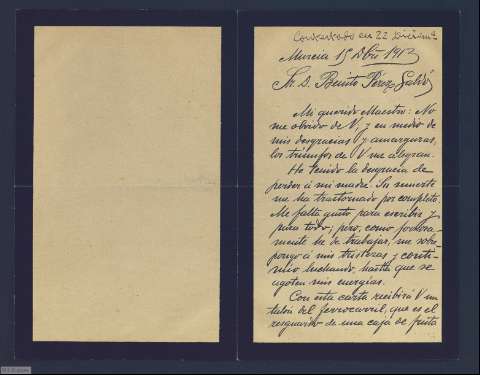 Contestado en 22 Diciembe
Murcia 15 Dbre 1912
Sr. D. Benito Pérez Galdós
Mi querido Maestro: No
me olvido de V, y en medio de
mis desgracias y amarguras,
los triunfos de V me alegran.
He tenido la desgracia de
perder á mi madre. Su muerte
me ha trastornado por completo.
Me falta gusto para escribir y
para todo; pero, como forzosa-
mente he de trabajar, me sobre-
pongo á mis tristezas y conti-
núo luchando, hasta que se
agoten mis energías.
Con esta carta recibirá V un
talón del ferrocarril, que es el
resguardo de una caja de fruta